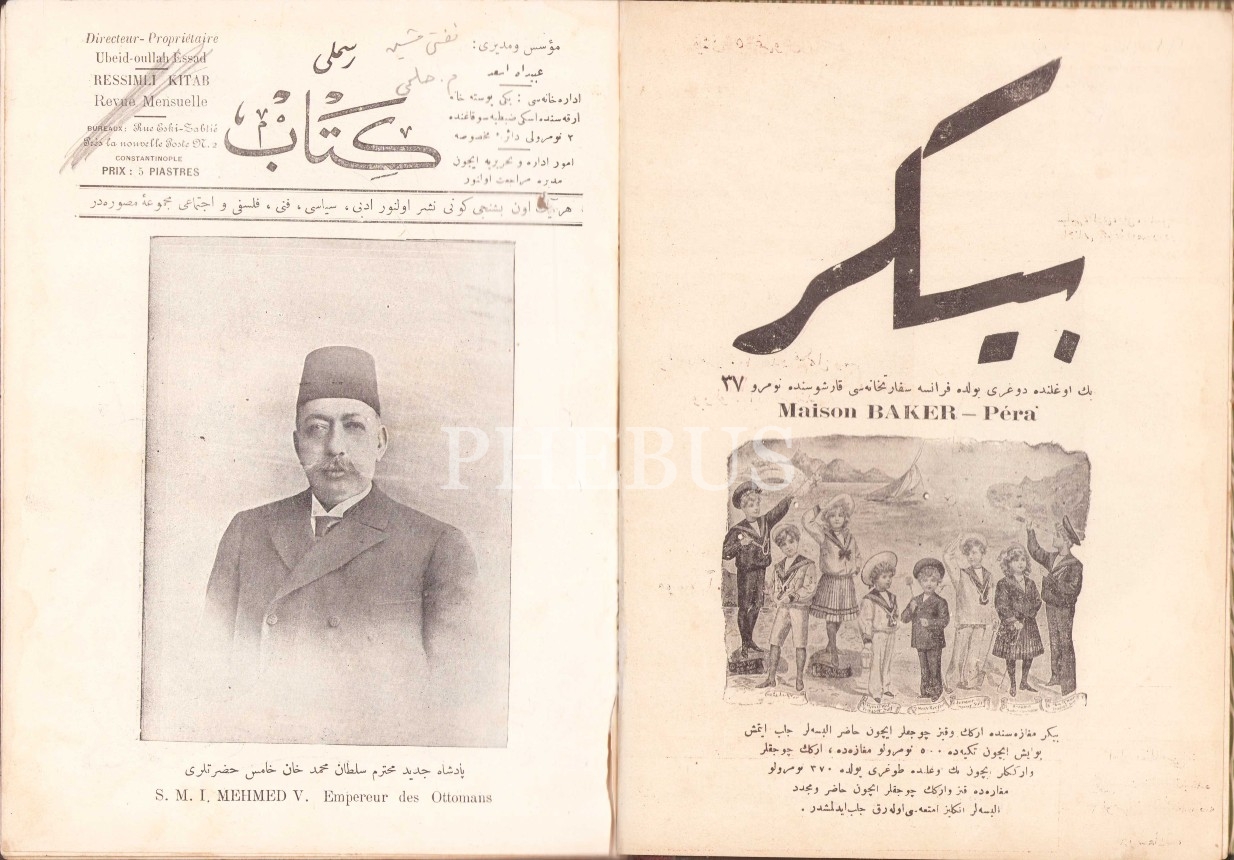 Directeur-Propriétaire
Ubeid-oullah Essad
RESSIMLI KITAB
Revue Mensuelle
BUREAUX: Rue Eski-Zabtié
Près la nouvelle Poste N. 2
CONSTANTINOPLE
PRIX : 5 PIASTRES
رسملی
كتاب
مؤسس ومدیری :
عبیدالله اسعد
اداره‌خانه‌سی : یكی پوسته خانه
آرقه‌سنده اسكی ضبطیه سوقاغنده
۲ نومرولی دائرهٔ مخصوصه
امور اداره و تحریریه ایچون
مدیره مراجعت اولنور
هر آیك اون بشنجی كونی نشر اولنور ادبی ، سیاسی ، فنی ، فلسفی و اجتماعی مجموعهٔ مصوره‌در
پادشاه جدید محترم سلطان محمد خان خامس حضرتلری
S. M. I. MEHMED V. Empereur des Ottomans
بیكر
بك اوغلنده دوغری یولده فرانسه سفارتخانه‌سی قارشوسنده نومرو ۳۷
Maison BAKER — Péra
PHEBUS
بیكر مغازه‌سنده اركك وقیز چوجقلر ایچون حاضر البسه‌لر جلب ایتمش
ایچون تكیه‌ده ۵۰۰ نومرولو مغازه‌ده ، اركك چوجقلر
ایچون بك وغلنده طوغری یولده ۳۷۰ نومرولو
مغازه‌ده قیز واركك چوجقلر ایچون حاضر ومجدد
البسه‌لر انكلیز امتعه‌سی اوله‌رق جلب ایدلمشدر .